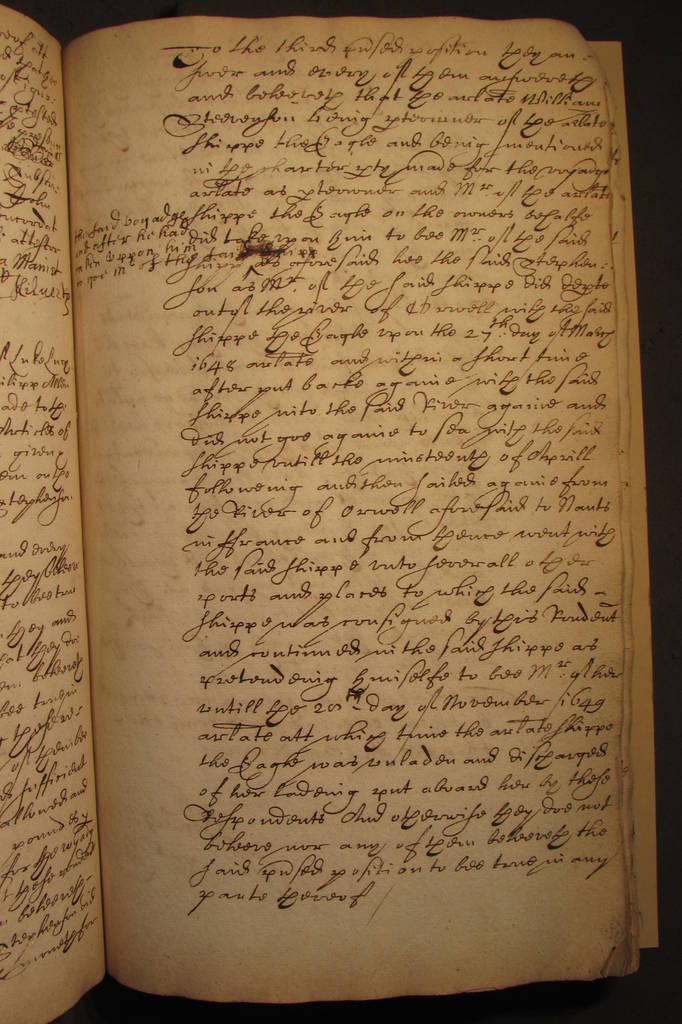 To the third pnsed position they an=
swer and every of them answereth
and beleeveth that the arlate William
Steevenson being pteowner of the arlate
shippe the Eagle and being mentioned
in the charter pty made for the voyadge
arlate as pteowner and Mr. of the arlate
shippe the Eagle on the owners behalfe
did take upon him to bee Mr. of the said
shipp as aforesaid hee the said Stephen=
the said voyadge
after he had
taken uppon him
to goe Mr of the said shipp
son as Mr. of the said shippe did depte
out of the river of Orwell with the said
shippe the Eagle upon the 27th. day of March
1648 arlate and within a short time
after put backe againe with the said
shippe into the said River againe and
did not goe againe to sea with the said
shippe untill the nineteenth of Aprill
following and then sailed againe from
the River of Orwell aforesaid to Nants
in ffrance and from thence went with
the said shippe unto severall other
ports and places to which the said
shippe was consigned by this Rondent
and continued in the said shippe as
pretending himselfe to bee Mr. of her
untill the 20th day of November 1649
arlate att which time the arlate shippe
the Eagle was unladen and discharged
of her ladeing put aboard her by these
Respondents And otherwise they doe not
beleeve nor any of them beleeveth the
said pnsed position to bee true in any
parte thereof